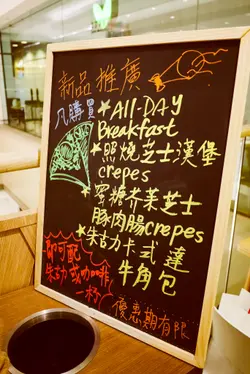 新品推廣
凡購買
★All-DAY
Breakfast
★照燒芝士漢堡
crepes
★蜜糖芥茉芝士
豚肉腸crepes
★朱古力卡式達
牛角包
即可配
朱古力或咖啡
一杯
優惠期有限